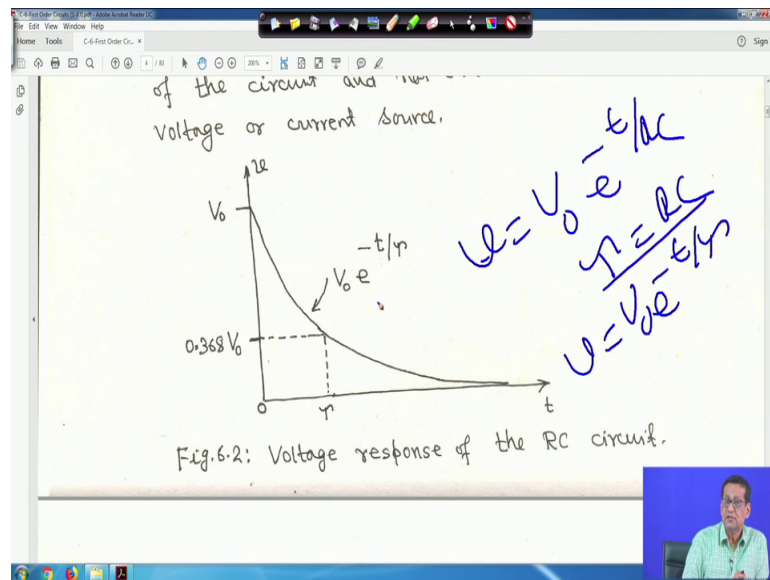 "C-6-First Order Circuits [1-83].pdf - Adobe Acrobat Reader DC
File Edit View Window Help
Home Tools C-6-First Order Cir... × Sign
4 / 83 200%
of the circuit and
Voltage or current source.
v
V₀
V₀ e^{-t/τ}
0.368 V₀
0 τ t
Fig.6.2: Voltage response of the RC circuit.
v = V₀ e^{-t/RC}
τ = RC
v = V₀e^{-t/τ}